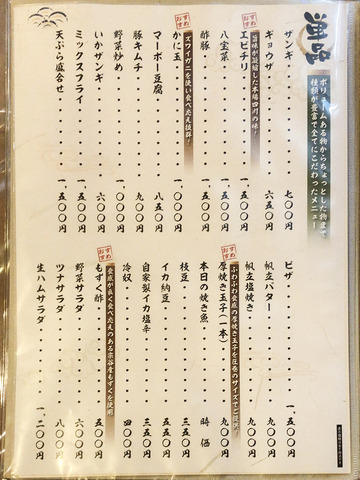 単品
ボリュームある物からちょっとした物まで
種類が豊富で全てにこだわったメニュー
ザンギ 七〇〇円
ギョウザ 六五〇円
旨味が凝縮した本場四川の味!
おすすめ
エビチリ 一、五〇〇円
八宝菜 一、五〇〇円
酢豚 一、五〇〇円
ズワイガニを使い食べ応え抜群!
おすすめ
かに玉 一、〇〇〇円
マーボー豆腐 八五〇円
豚キムチ 九〇〇円
野菜炒め 一、〇〇〇円
いかザンギ 六〇〇円
ミックスフライ 一、五〇〇円
天ぷら盛合せ 一、五〇〇円
ピザ 一、五〇〇円
帆立バター 九〇〇円
帆立塩焼き 九〇〇円
ふわふわ食感の厚焼き玉子を圧巻のサイズでご提供
おすすめ
厚焼き玉子(一本) 九〇〇円
本日の焼き魚 時価
枝豆 三五〇円
イカ納豆 五五〇円
自家製イカ塩辛 三五〇円
冷奴 四〇〇円
食感が良く食べ応えのある宗谷産もずくを使用
おすすめ
もずく酢 五〇〇円
野菜サラダ 六〇〇円
ツナサラダ 八〇〇円
生ハムサラダ 一、二〇〇円